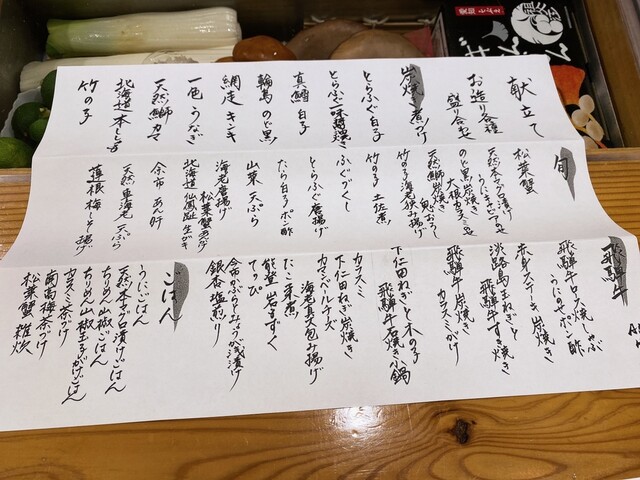 献立て
お造り各種
盛り合わせ
炭焼き 煮つけ
とらふぐ白子
とらふぐ味醂焼き
真鱈 白子
輪島 のど黒
網走 キンキ
一色 うなぎ
天然鰤 カマ
北海道 本ししゃも
竹の子
旬
松葉蟹
天然本マグロ漬け
のど黒炭焼き
天然鰤炭焼き
竹の子海老挟み焼き
竹の子 土佐煮
ふぐづくし
とらふぐ唐揚げ
たら白子ポン酢
山菜 天ぷら
海老唐揚げ
北海道仙鳳趾生がき
余市 あん肝
天然車海老 天ぷら
蓮根 梅しそ揚げ
飛騨牛
飛騨牛トロ大焼しゃぶ
うにのせポン酢
赤身ステーキ 炭焼き
淡路島玉ねぎと
飛騨牛すき焼き
飛騨牛 炭焼き
カラスミがけ
下仁田ねぎと木の子
飛騨牛石焼き小鍋
カラスミ
下仁田ねぎ炭焼き
カマンベールチーズ
海老真丈包み揚げ
たこ柔煮
能登 岩もずく
余市かぶらとみょうが浅漬け
銀杏塩煎り
ごはん
うにごはん
天然本マグロ漬けごはん
ちりめん山椒ごはん
ちりめん山椒玉子がけごはん
カラスミ茶づけ
南高梅茶づけ
松葉蟹 雑炊